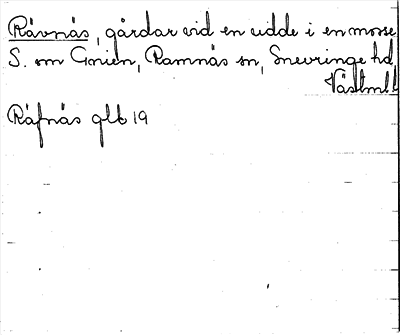 Rävnäs, gårdar vid en udde i en mosse
S. om Gnien, Ramnäs sn, Snevringe hd
Västml.
Räfnäs glb 19